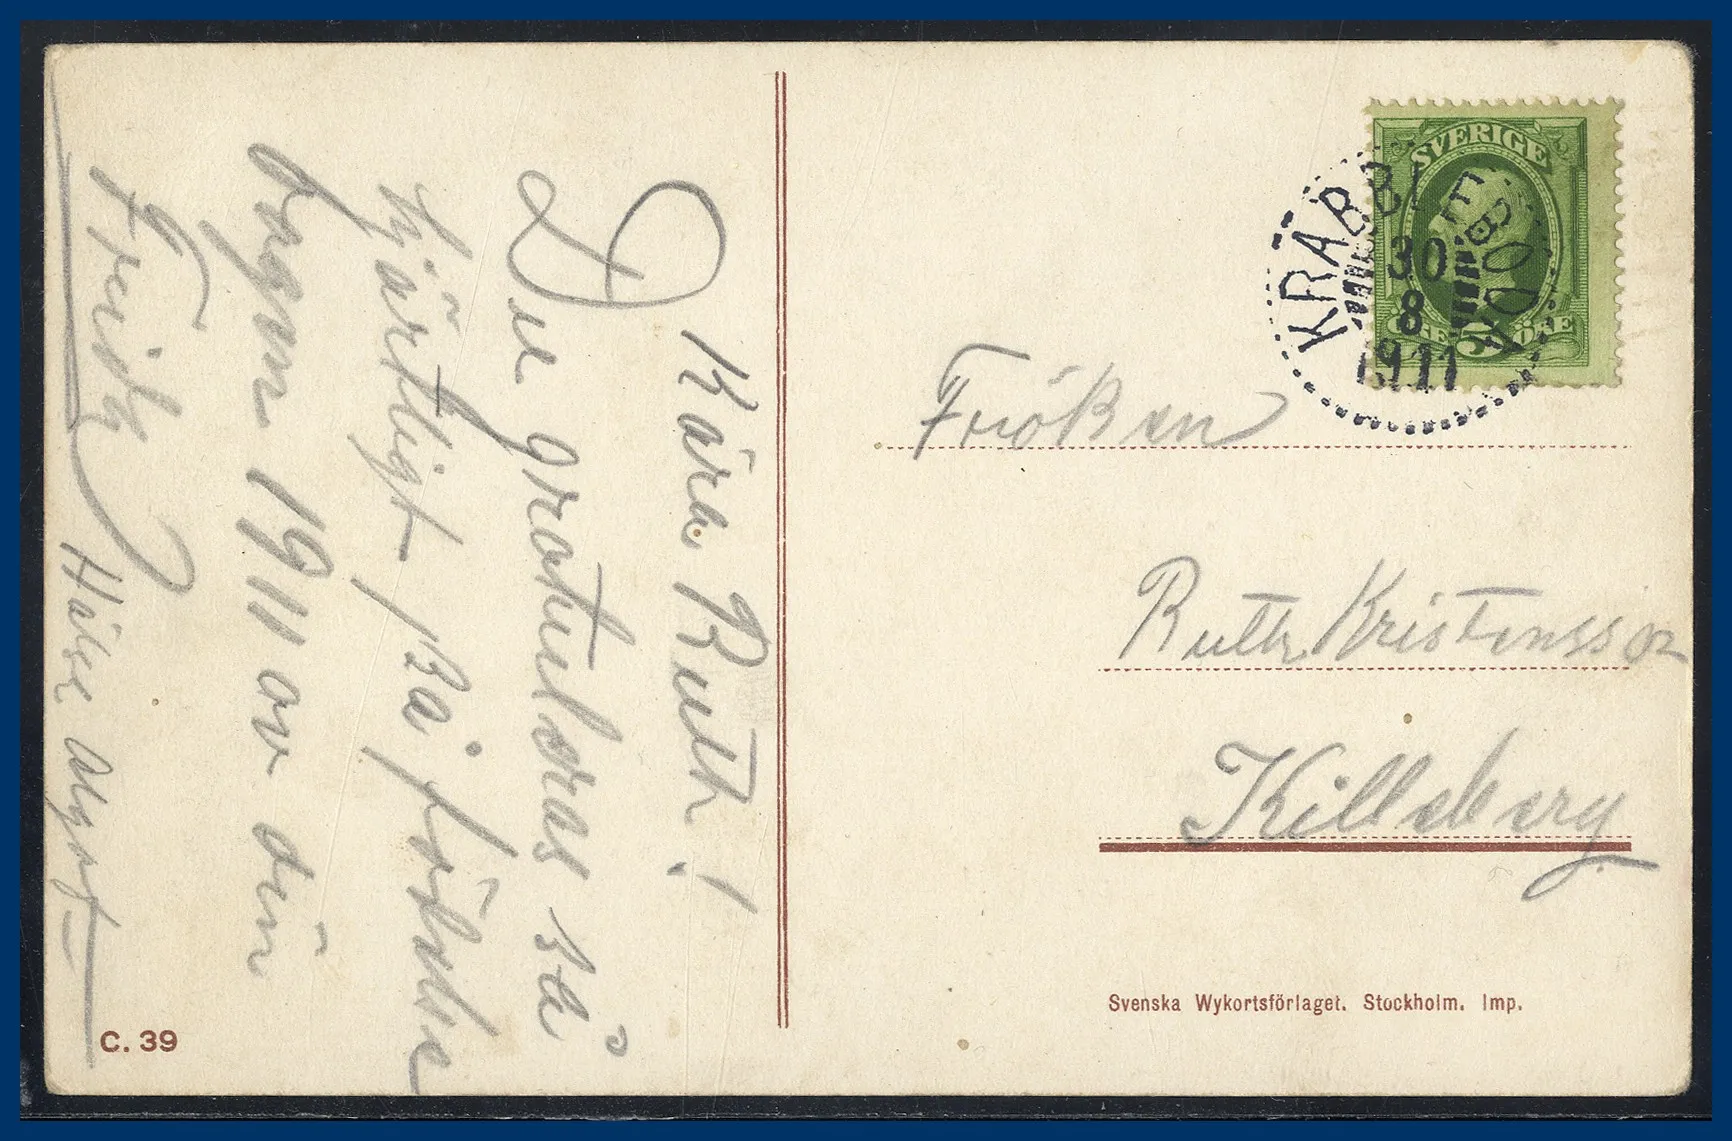 Kära Ruth!
Du gratuleras så
hjärtligt på födelse
dagen 1911 av din
Frida
Hälse Algot
C. 39
SVERIGE
5
ÖRE
KRÄBBLE
BODA
30
8
1911
Fröken
Ruth Kristensson
Killeberg
Svenska Wykortsförlaget. Stockholm. Imp.